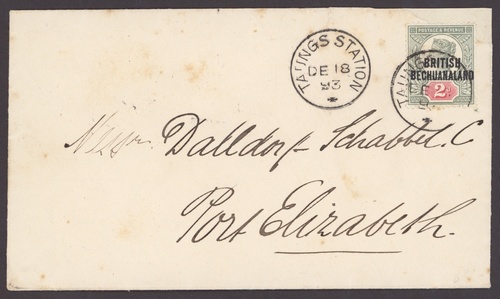 TAUNGS STATION
DE 18
93
POSTAGE & REVENUE
BRITISH
BECHUANALAND
2D
TAUNGS
Messrs Dalldorf Schabbel. C
Port Elizabeth.